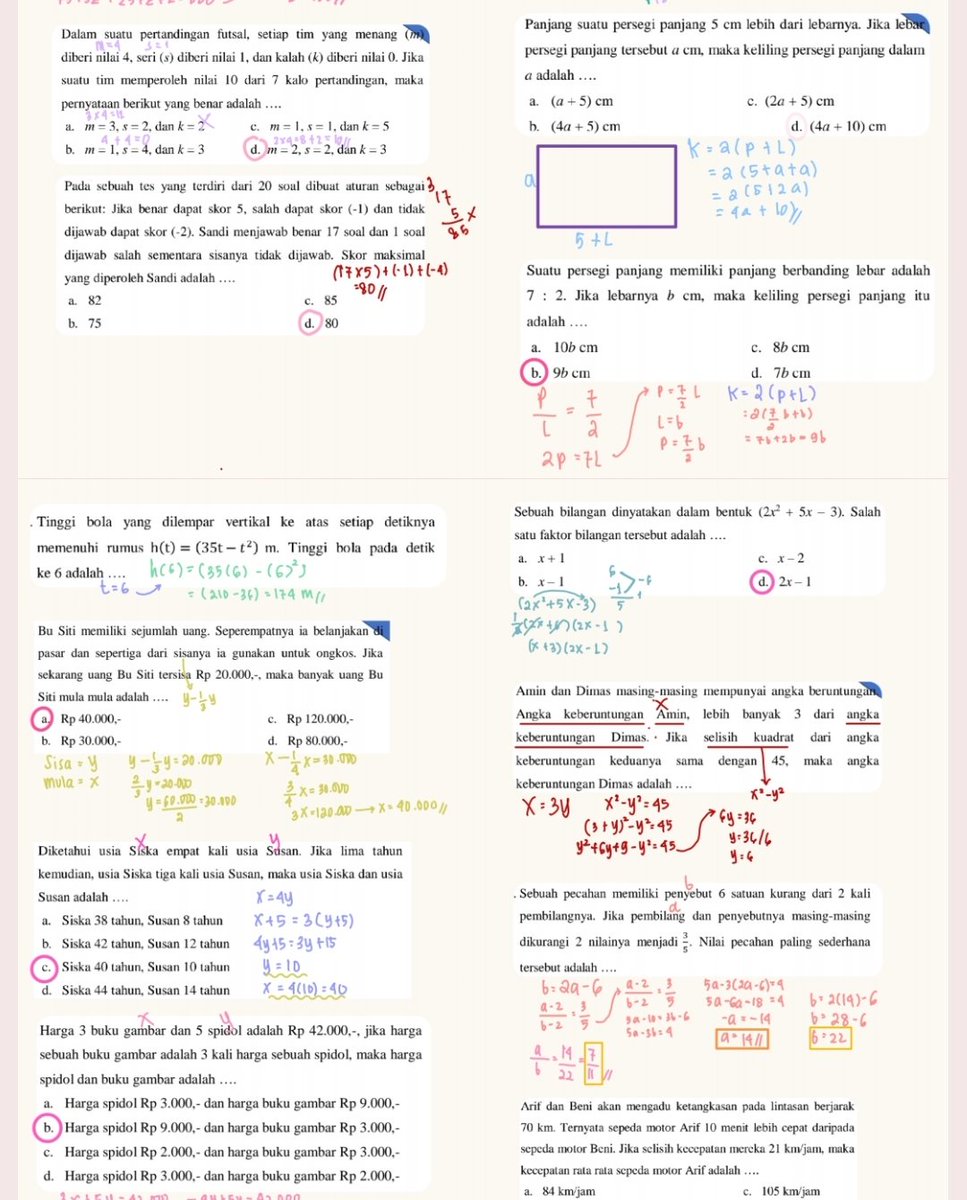 Dalam suatu pertandingan futsal, setiap tim yang menang (m)
m=4 s=1
diberi nilai 4, seri (s) diberi nilai 1, dan kalah (k) diberi nilai 0. Jika
suatu tim memperoleh nilai 10 dari 7 kalo pertandingan, maka
pernyataan berikut yang benar adalah ….
3x4=12
a. m = 3, s = 2, dan k = 2 c. m = 1, s = 1, dan k = 5
4+4=0 2x4=8+2=10//
b. m = 1, s = 4, dan k = 3 d. m = 2, s = 2, dan k = 3
Pada sebuah tes yang terdiri dari 20 soal dibuat aturan sebagai
berikut: Jika benar dapat skor 5, salah dapat skor (-1) dan tidak
dijawab dapat skor (-2). Sandi menjawab benar 17 soal dan 1 soal
dijawab salah sementara sisanya tidak dijawab. Skor maksimal
yang diperoleh Sandi adalah ….
17
5 x
85
(17x5)+(-1)+(-4)
=80//
a. 82 c. 85
b. 75 d. 80
Panjang suatu persegi panjang 5 cm lebih dari lebarnya. Jika lebar
persegi panjang tersebut a cm, maka keliling persegi panjang dalam
a adalah ….
a. (a + 5) cm c. (2a + 5) cm
b. (4a + 5) cm d. (4a + 10) cm
a
5+L
K = 2(p+L)
= 2(5+a+a)
= 2(5+2a)
= 4a + 10//
Suatu persegi panjang memiliki panjang berbanding lebar adalah
7 : 2. Jika lebarnya b cm, maka keliling persegi panjang itu
adalah ….
a. 10b cm c. 8b cm
b. 9b cm d. 7b cm
P/L = 7/2
2p = 7L
P = 7/2 L
L = b
P = 7/2 b
K = 2(p+L)
= 2(7/2 b+b)
= 7b+2b = 9b
. Tinggi bola yang dilempar vertikal ke atas setiap detiknya
memenuhi rumus h(t) = (35t − t²) m. Tinggi bola pada detik
ke 6 adalah ….
t=6
h(6) = (35(6) - (6)²)
= (210-36) = 174 m//
Bu Siti memiliki sejumlah uang. Seperempatnya ia belanjakan di
pasar dan sepertiga dari sisanya ia gunakan untuk ongkos. Jika
sekarang uang Bu Siti tersisa Rp 20.000,-, maka banyak uang Bu
Siti mula mula adalah ….
y-1/3y
a. Rp 40.000,- c. Rp 120.000,-
b. Rp 30.000,- d. Rp 80.000,-
Sisa = y
mula = x
y-1/3y = 20.000
2/3y = 20.000
y = 60.000/2 = 30.000
x-1/4x = 30.000
3/4x = 30.000
3x = 120.000 → x = 40.000//
x y
Diketahui usia Siska empat kali usia Susan. Jika lima tahun
kemudian, usia Siska tiga kali usia Susan, maka usia Siska dan usia
Susan adalah ….
a. Siska 38 tahun, Susan 8 tahun
b. Siska 42 tahun, Susan 12 tahun
c. Siska 40 tahun, Susan 10 tahun
d. Siska 44 tahun, Susan 14 tahun
x = 4y
x+5 = 3(y+5)
4y+5 = 3y+15
y = 10
x = 4(10) = 40
x y
Harga 3 buku gambar dan 5 spidol adalah Rp 42.000,-, jika harga
sebuah buku gambar adalah 3 kali harga sebuah spidol, maka harga
spidol dan buku gambar adalah ….
a. Harga spidol Rp 3.000,- dan harga buku gambar Rp 9.000,-
b. Harga spidol Rp 9.000,- dan harga buku gambar Rp 3.000,-
c. Harga spidol Rp 2.000,- dan harga buku gambar Rp 3.000,-
d. Harga spidol Rp 3.000,- dan harga buku gambar Rp 2.000,-
Sebuah bilangan dinyatakan dalam bentuk (2x² + 5x − 3). Salah
satu faktor bilangan tersebut adalah ….
a. x + 1 c. x − 2
b. x − 1 d. 2x − 1
6
-1 > -6
5
(2x²+5x-3)
(2x-1)
(x+3)(2x-1)
Amin dan Dimas masing-masing mempunyai angka beruntungan.
x
Angka keberuntungan Amin, lebih banyak 3 dari angka
keberuntungan Dimas. Jika selisih kuadrat dari angka
keberuntungan keduanya sama dengan 45, maka angka
keberuntungan Dimas adalah ….
x²-y²
x = 3y
x²-y² = 45
(3+y)²-y² = 45
y²+6y+9-y² = 45
6y = 36
y = 36/6
y = 6
b
. Sebuah pecahan memiliki penyebut 6 satuan kurang dari 2 kali
a
pembilangnya. Jika pembilang dan penyebutnya masing-masing
dikurangi 2 nilainya menjadi 3/5. Nilai pecahan paling sederhana
tersebut adalah ….
b = 2a-6
a-2/b-2 = 3/5
a-2/b-2 = 3/5
5a-10 = 3b-6
5a-3b = 4
5a-3(2a-6) = 4
5a-6a-18 = 4
-a = -14
a = 14//
b = 2(14)-6
b = 28-6
b = 22
a/b = 14/22 = 7/11//
Arif dan Beni akan mengadu ketangkasan pada lintasan berjarak
70 km. Ternyata sepeda motor Arif 10 menit lebih cepat daripada
sepeda motor Beni. Jika selisih kecepatan mereka 21 km/jam, maka
kecepatan rata rata sepeda motor Arif adalah ….
a. 84 km/jam c. 105 km/jam